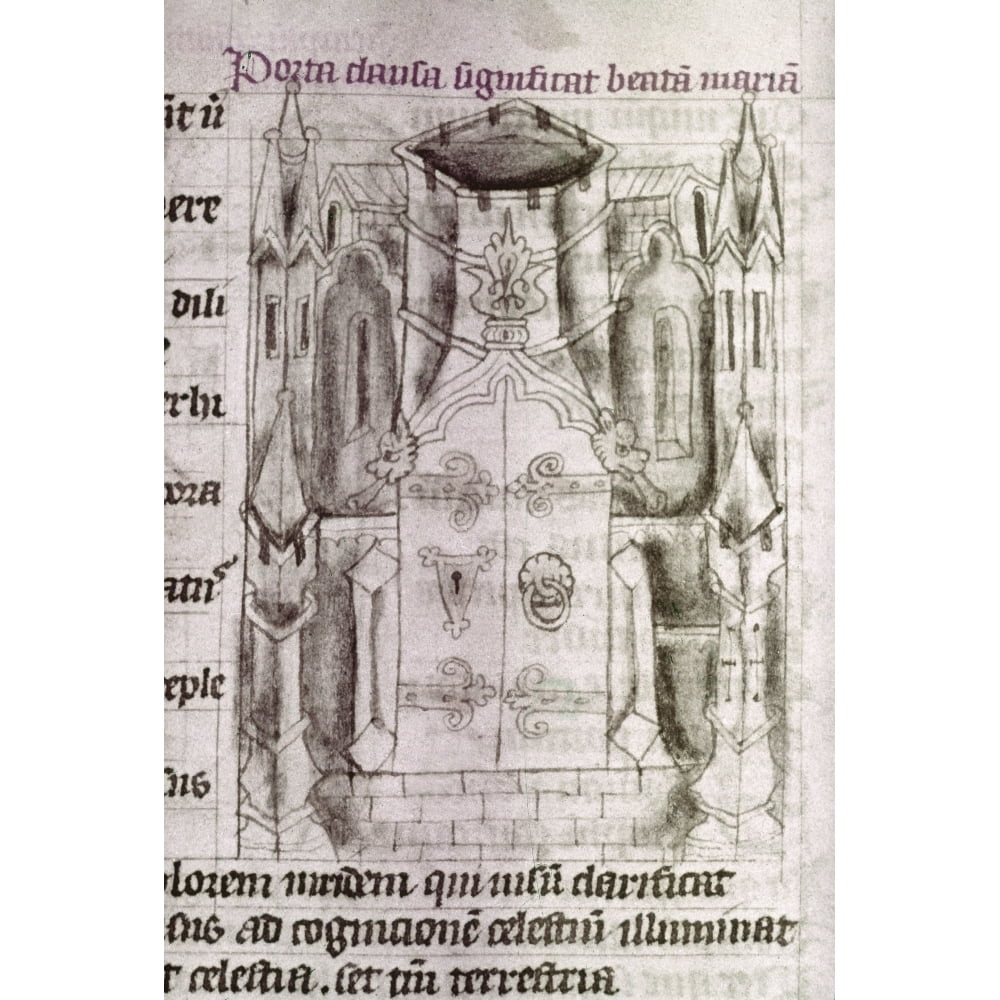 Porta clausa significat beatā mariā
ít ū
ere
dili
rhi
ora
atīs
eple
sus
lorem uiridem qui uisū clarificat
sus ad cognicionē celestiū illuminat
t celestia. set tm̄ terrestria